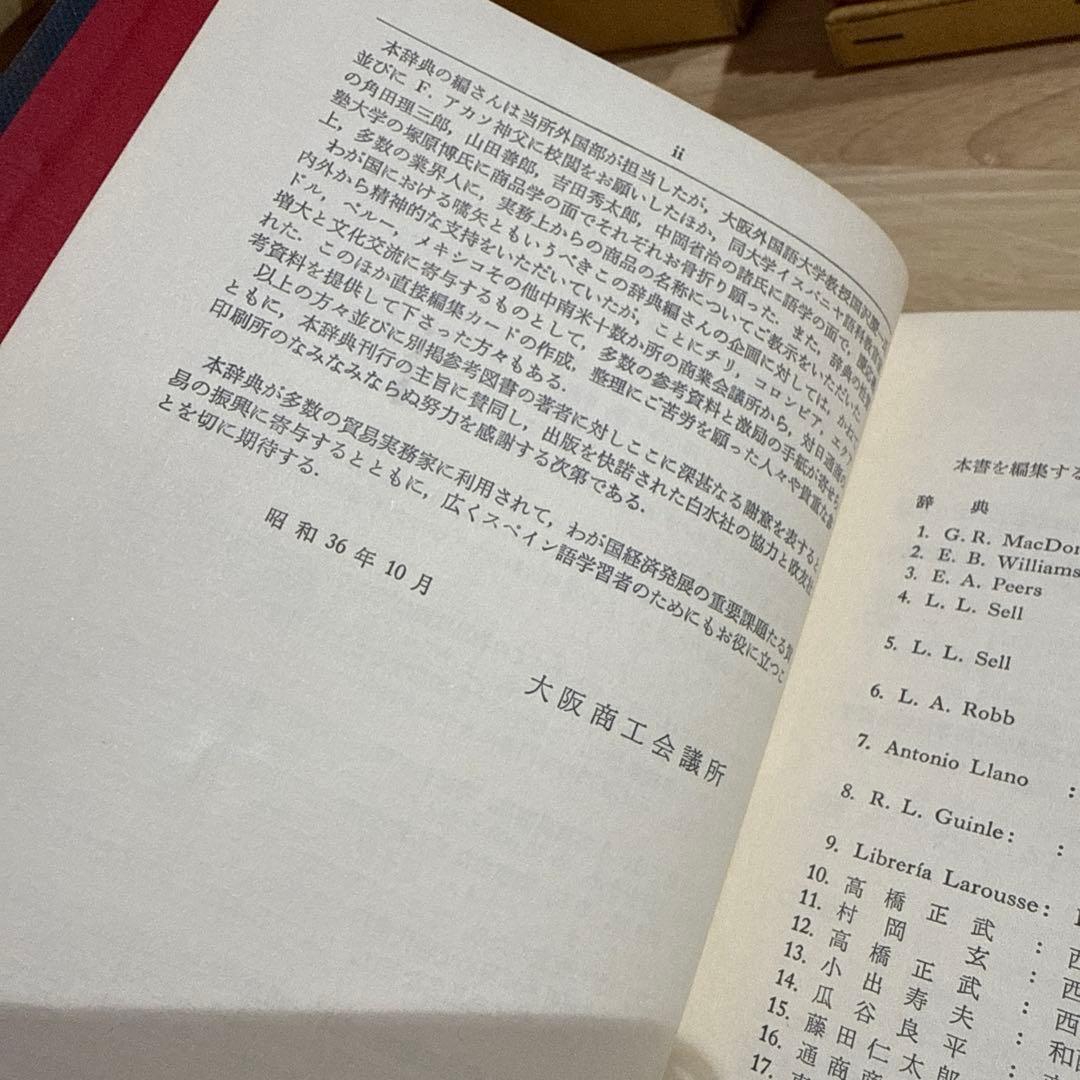 ii
本辞典の編さんは当所外国部が担当したが，大阪外国語大学教授国沢慶一
並びに F. アカソ神父に校閲をお願いしたほか，同大学イスパニヤ語科教官
の角田理三郎，山田善郎，吉田秀太郎，中岡省治の諸氏に語学の面で，
塾大学の塚原博氏に商品学の面でそれぞれお骨折り願った．また，辞典の性
上，多数の業界人に，実務上からの商品の名称についてご教示をいただいた．
わが国における嚆矢ともいうべきこの辞典編さんの企画に対しては，かね
内外から精神的な支持をいただいていたが，ことにチリ，コロンビア，エクア
ドル，ペルー，メキシコその他中南米十数か所の商業会議所から，対日通商の
増大と文化交流に寄与するものとして，多数の参考資料と激励の手紙が寄せら
れた．このほか直接編集カードの作成，整理にご苦労を願った人々や貴重な参
考資料を提供して下さった方々もある．
以上の方々並びに別掲参考図書の著者に対しここに深甚なる謝意を表すると
ともに，本辞典刊行の主旨に賛同し，出版を快諾された白水社の協力と欧友社
印刷所のなみなみならぬ努力を感謝する次第である．
本辞典が多数の貿易実務家に利用されて，わが国経済発展の重要課題たる貿
易の振興に寄与するとともに，広くスペイン語学習者のためにもお役に立つこ
とを切に期待する．
昭和 36 年 10 月
大阪商工会議所
本書を編集する
辞 典
1. G. R. MacDon
2. E. B. Williams
3. E. A. Peers
4. L. L. Sell
5. L. L. Sell
6. L. A. Robb
7. Antonio Llano :
8. R. L. Guinle : :
9. Librería Larousse :
10. 高橋正武 : 西
11. 村岡玄 : 西
12. 高橋正武 : 西
13. 小出寿夫 : 和
14. 瓜谷良平
15. 藤田仁太郎
16. 通商
17.